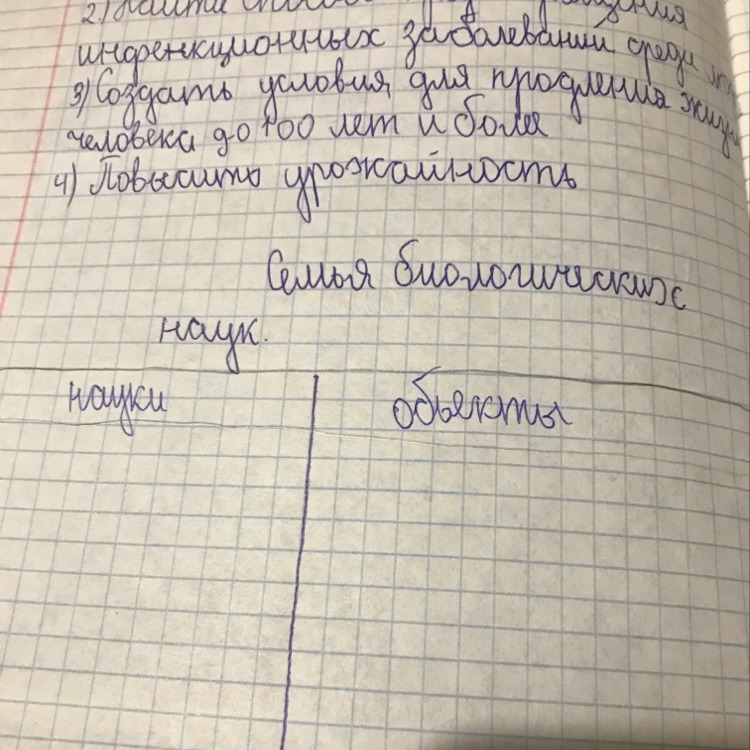 2) Найти
инфенкционных заболеваний среди
3) Создать условия для продления жизни
человека до 100 лет и болея
4) Повысить урожайность
Семья биологических
наук.
науки
объекты